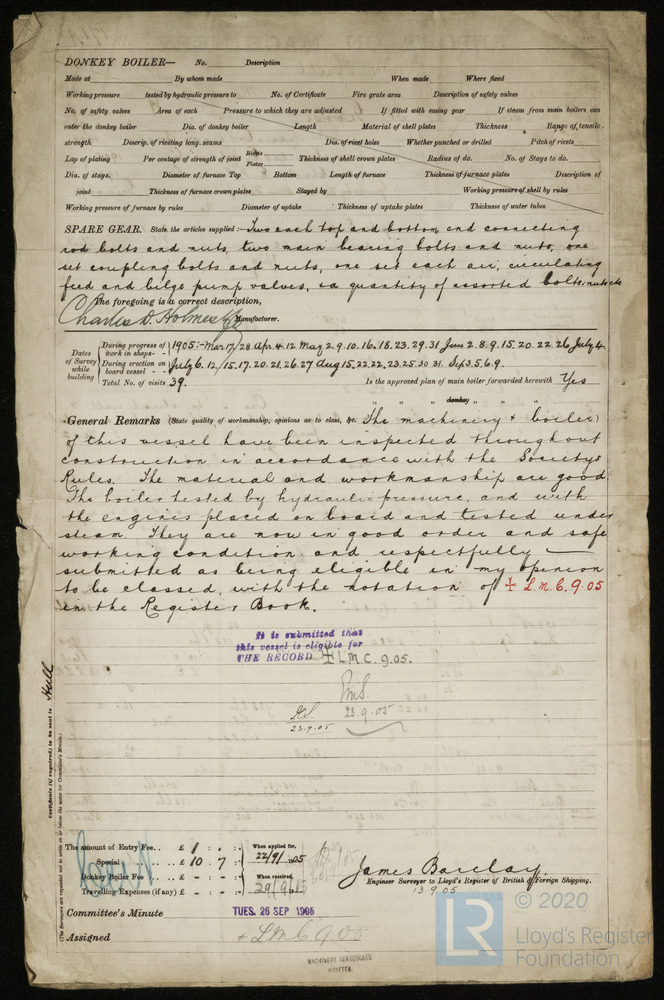 DONKEY BOILER— No. Description
Made at By whom made When made Where fixed
Working pressure tested by hydraulic pressure to No. of Certificate Fire grate area Description of safety valves
No. of safety valves Area of each Pressure to which they are adjusted If fitted with easing gear If steam from main boilers can
enter the donkey boiler Dia. of donkey boiler Length Material of shell plates Thickness Range of tensile
strength Descrip. of riveting long. seams Dia. of rivet holes Whether punched or drilled Pitch of rivets
Lap of plating Per centage of strength of joint Rivets Plates Thickness of shell crown plates Radius of do. No. of Stays to do.
Dia. of stays. Diameter of furnace Top Bottom Length of furnace Thickness of furnace plates Description of
joint Thickness of furnace crown plates Stayed by Working pressure of shell by rules
Working pressure of furnace by rules Diameter of uptake Thickness of uptake plates Thickness of water tubes
SPARE GEAR. State the articles supplied:— Two each top and bottom end connecting
rod bolts and nuts, two main bearing bolts and nuts, one
set coupling bolts and nuts, one set each air, circulating
feed and bilge pump valves, & a quantity of assorted bolts, nuts etc
The foregoing is a correct description,
Charles D. Holmes & Co Manufacturer.
Dates of Survey while building
During progress of work in shops - - 1905:- Mar 17/28. Apr 4.12 May 2.9.10.16.18.23.29.31 June 2.8.9.15.20.22.26 July 4.
During erection on board vessel - - July 6.12/15.17.20.21.26.27 Aug 15.22.22.23.25.30.31. Sep 3.5.6.9.
Total No. of visits 39. Is the approved plan of main boiler forwarded herewith Yes
" " " donkey " " "
General Remarks (State quality of workmanship, opinions as to class, &c. The machinery & boiler
of this vessel have been inspected throughout
construction in accordance with the Society's
Rules. The material and workmanship are good
The boiler tested by hydraulic pressure, and with
the engines placed on board and tested under
steam. They are now in good order and safe
working condition and respectfully —
submitted as being eligible in my opinion
to be classed, with the notation of + L.M.C. 9.05
in the Register Book.
It is submitted that
this vessel is eligible for
THE RECORD + L.M.C. 9.05.
23.9.05
23.9.05
Certificate (if required) to be sent to Hull
(The Surveyors are requested not to write on or below the space for Committee's Minute.)
The amount of Entry Fee.. £ 1 : . : When applied for,
Special .. £ 10 . 7 : 22/9/1905
Donkey Boiler Fee .. £ - : - : When received,
Travelling Expenses (if any) £ - : - :
James Barclay
Engineer Surveyor to Lloyd's Register of British & Foreign Shipping.
13.9.05
Committee's Minute TUES. 26 SEP 1905
Assigned + LMC 9.05
MACHINERY CERTIFICATE
WRITTEN.
LR
© 2020
Lloyd's Register
Foundation